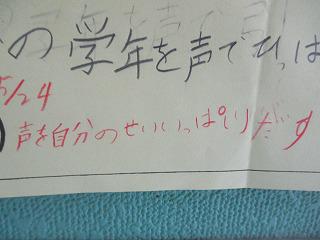 の学年を声でひっぱ
5/24
声を自分のせいいっぱいだす